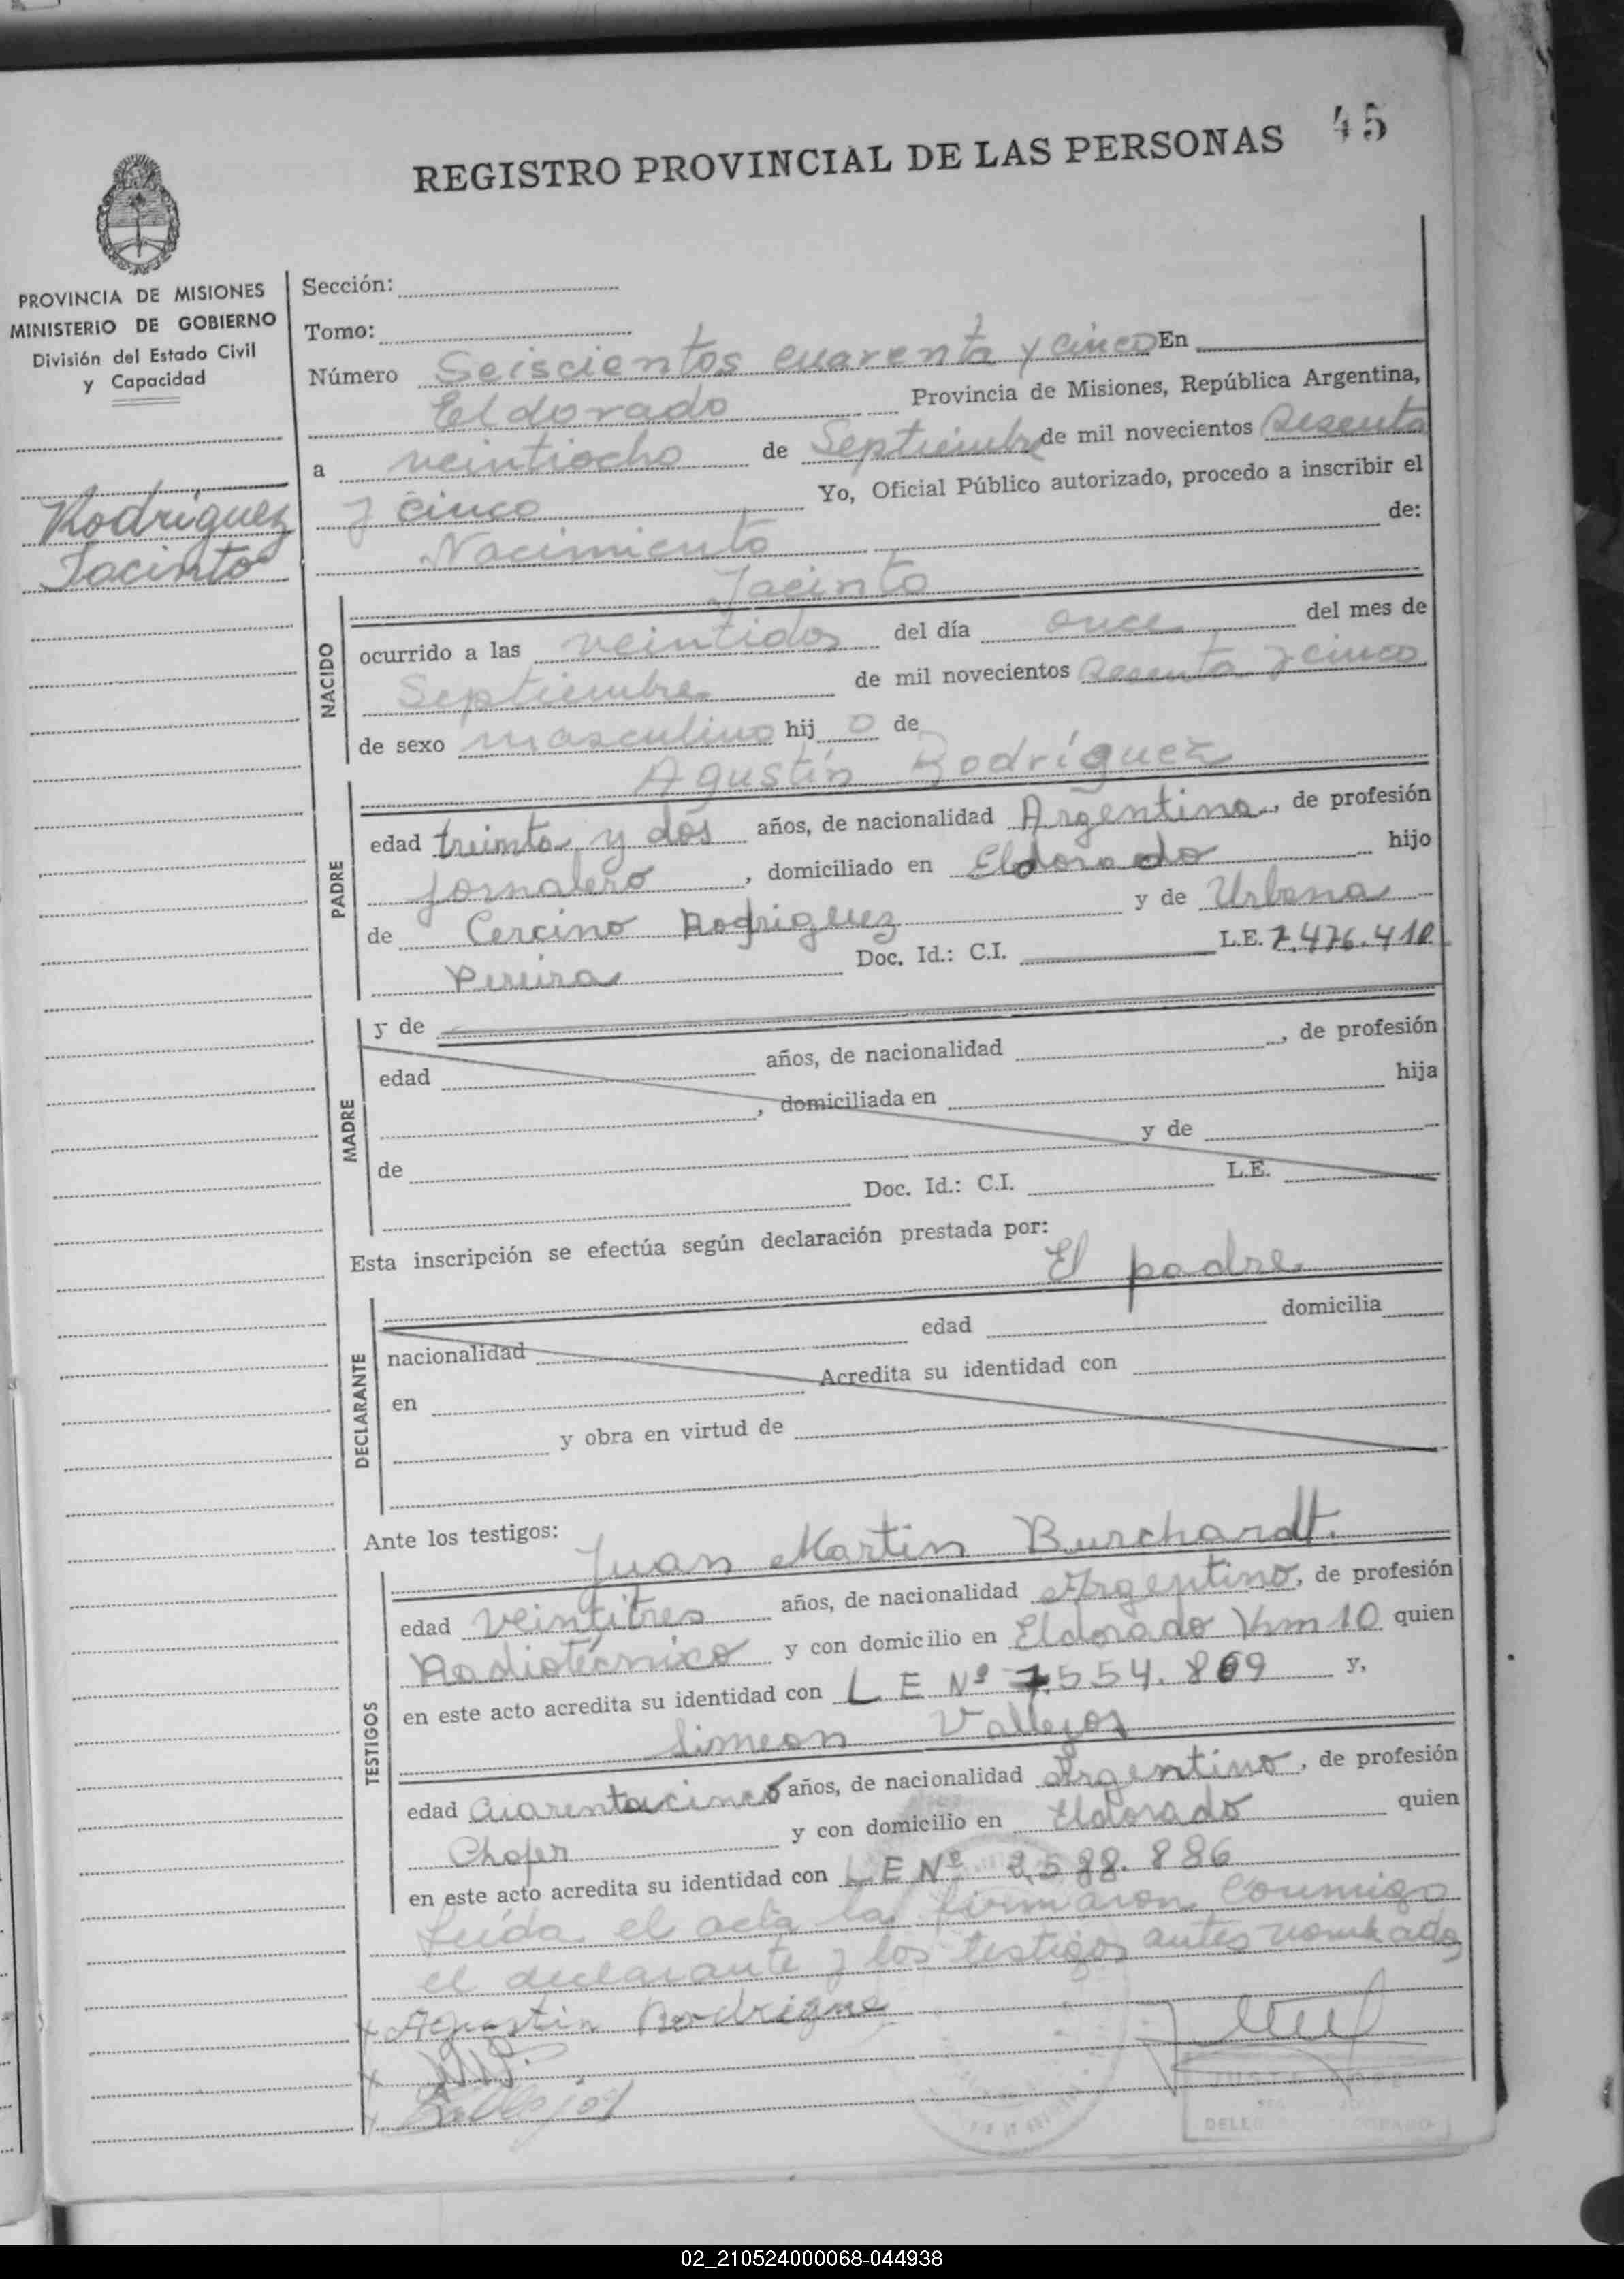 45
REGISTRO PROVINCIAL DE LAS PERSONAS
PROVINCIA DE MISIONES
MINISTERIO DE GOBIERNO
División del Estado Civil
y Capacidad
Rodríguez
Jacinto
Sección:
Tomo:
Número Seiscientos cuarenta y cinco En
Eldorado Provincia de Misiones, República Argentina,
a veintiocho de Septiembre de mil novecientos sesenta
y cinco Yo, Oficial Público autorizado, procedo a inscribir el
Nacimiento de:
Jacinto
NACIDO
ocurrido a las veintidos del día once del mes de
Septiembre de mil novecientos sesenta y cinco
de sexo masculino hij o de
Agustín Rodríguez
PADRE
edad treinta y dos años, de nacionalidad Argentina, de profesión
Jornalero, domiciliado en Eldorado hijo
de Cercino Rodriguez y de Urbana
Pereira Doc. Id.: C.I. L.E. 7.476.410
MADRE
y de
edad años, de nacionalidad , de profesión
, domiciliada en hija
de y de
Doc. Id.: C.I. L.E.
Esta inscripción se efectúa según declaración prestada por:
El padre
DECLARANTE
nacionalidad edad domicilia
en Acredita su identidad con
y obra en virtud de
Ante los testigos:
Juan Martin Burchardt.
TESTIGOS
edad veintitres años, de nacionalidad Argentino, de profesión
Radiotécnico y con domicilio en Eldorado Km 10 quien
en este acto acredita su identidad con L E Nº 7.554.869 y,
Simeon Vallejos
edad Cuarentacinco años, de nacionalidad Argentino, de profesión
Chofer y con domicilio en Eldorado quien
en este acto acredita su identidad con L E Nº 2.588.886
Leída el acta la firmaron conmigo
el declarante y los testigos antes nombrados
x Agustin Rodrigue
x
x Vallejos
02_210524000068-044938